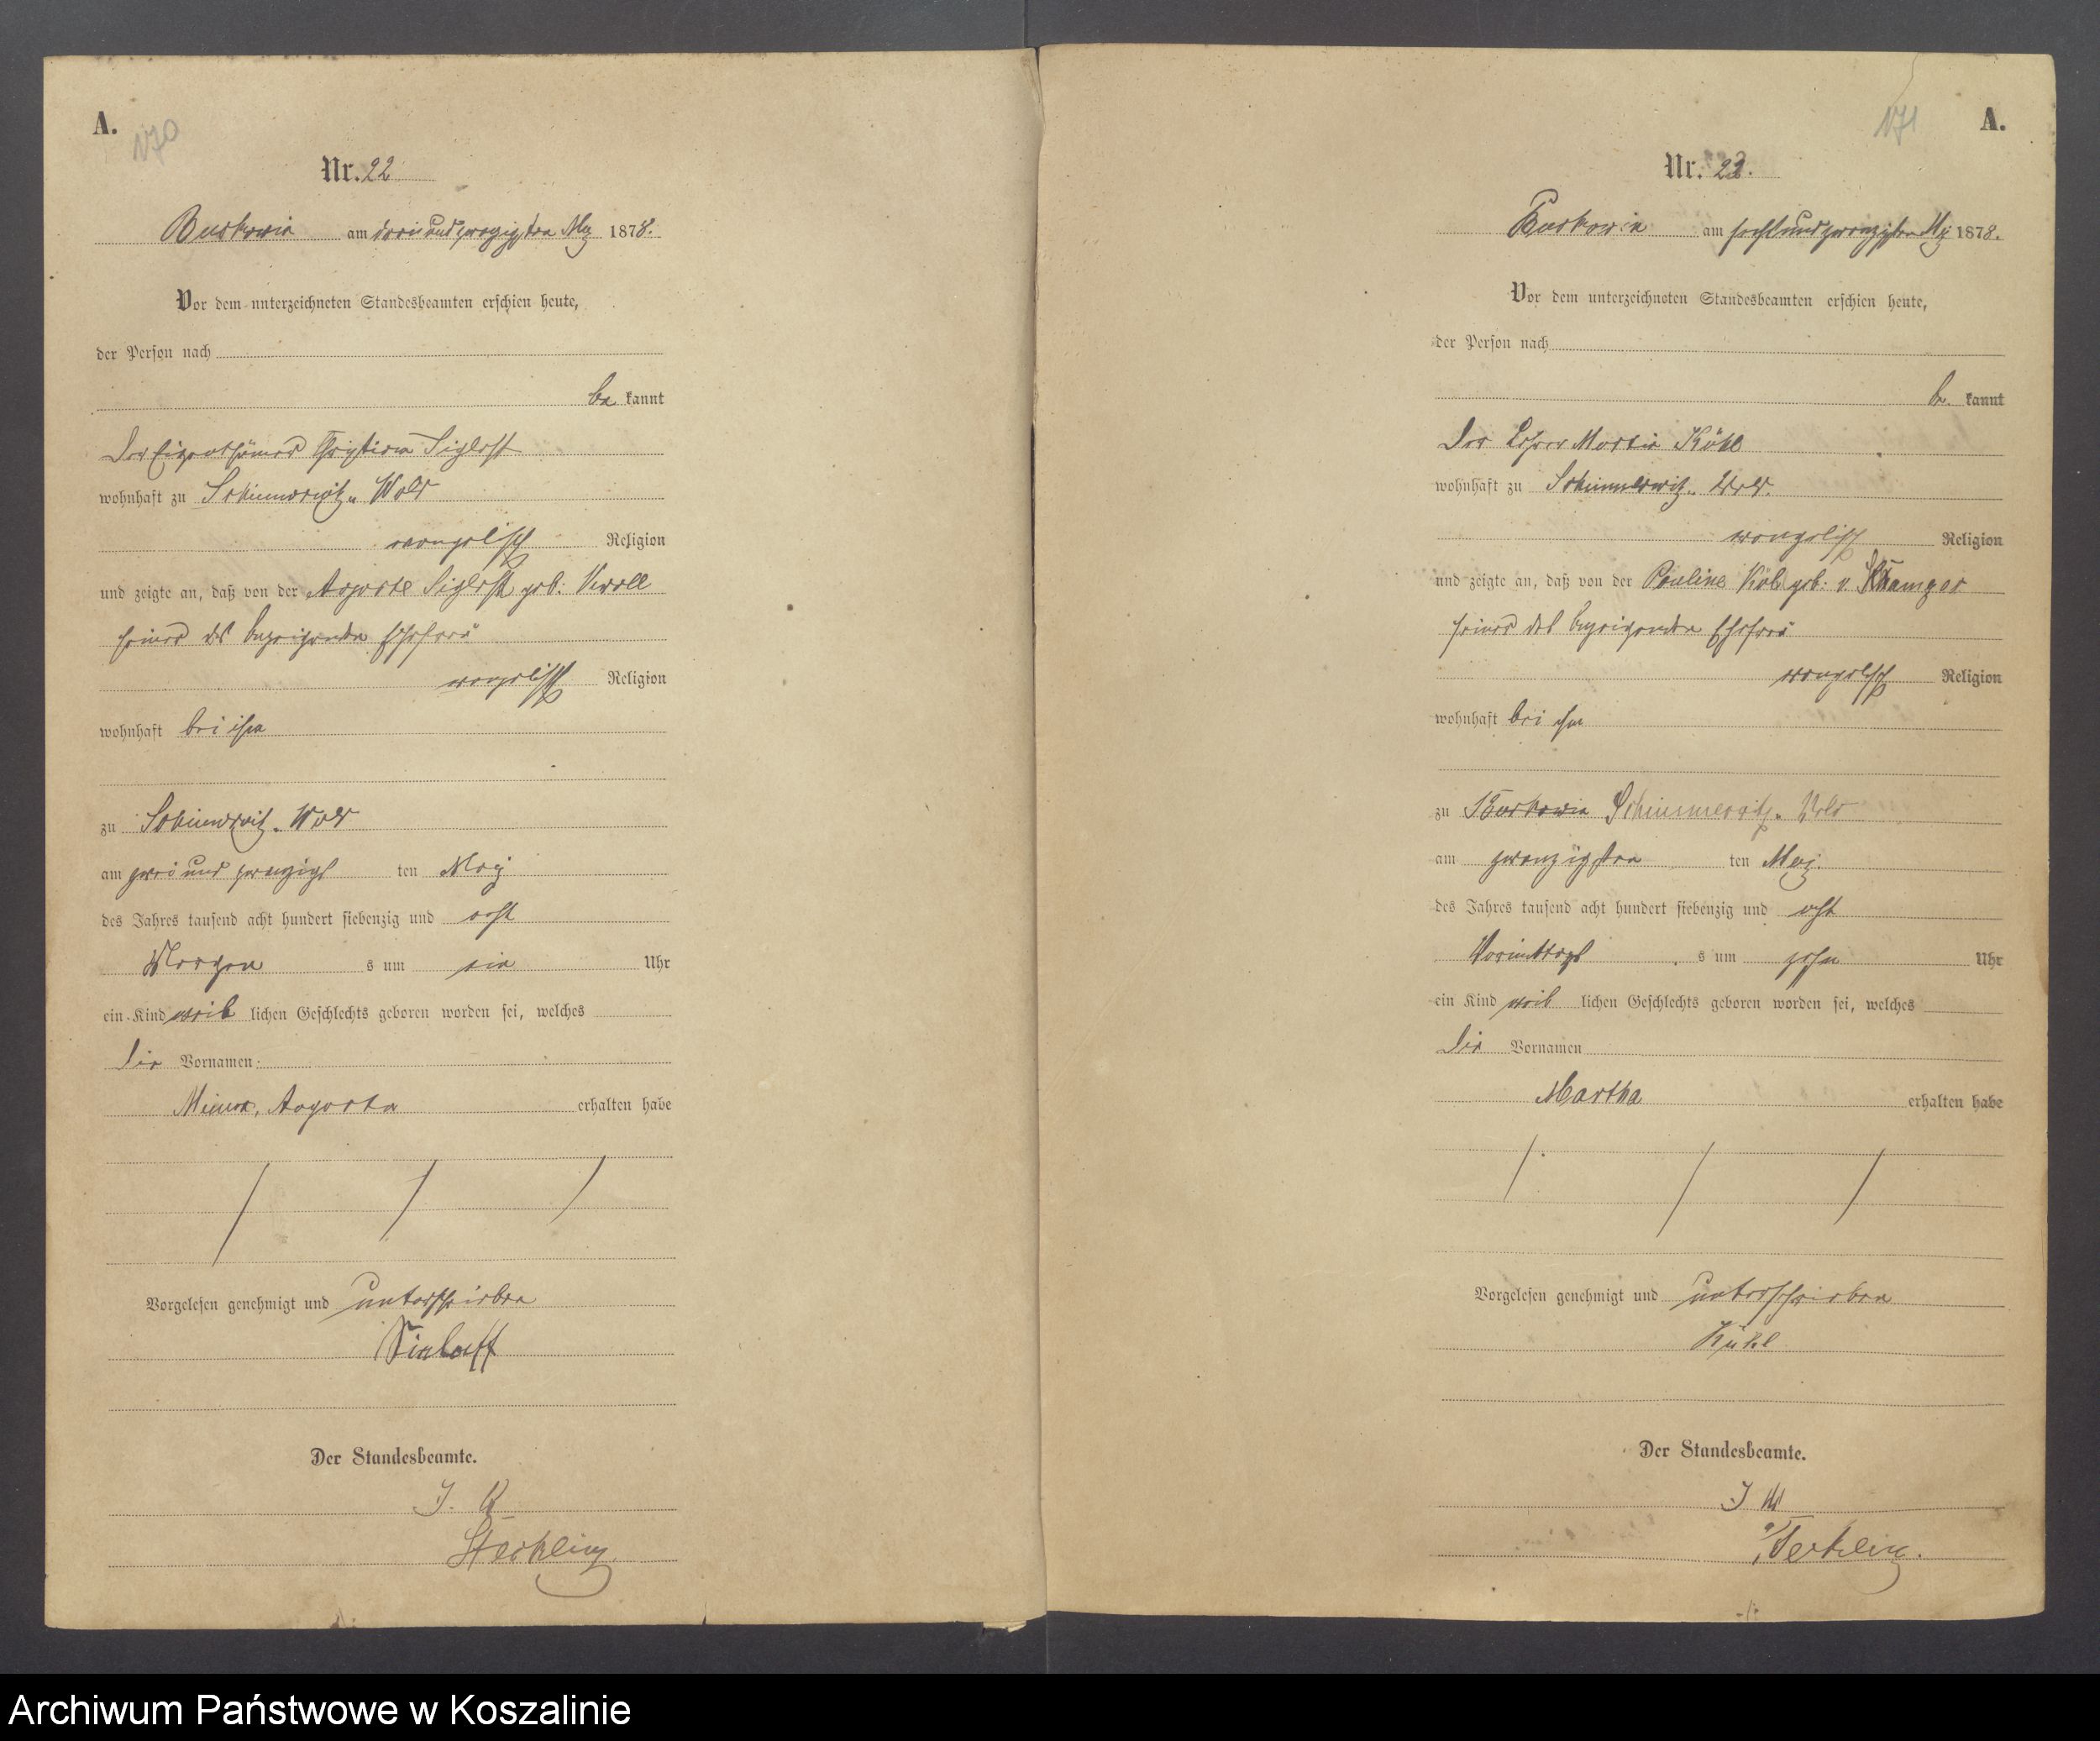 A.
170
Nr. 22
Buckowin am drei und zwanzigsten Mai 1878.
Vor dem unterzeichneten Standesbeamten erschien heute,
der Person nach
be kannt
Der Eigenthümer Christian
wohnhaft zu Schimmerwitz Wold
evangelisch Religion
und zeigte an, daß von der Auguste geb. Kroll
seiner des Anzeigenden Ehefrau
evangelisch Religion
wohnhaft bei ihm
zu Schimmerwitz Wold
am zwei und zwanzigs ten Mai
des Jahres tausend acht hundert siebenzig und acht
Morgen s um ein Uhr
ein Kind weib lichen Geschlechts geboren worden sei, welches
die Vornamen:
Minna, Auguste erhalten habe
Vorgelesen genehmigt und unterschrieben
Der Standesbeamte.
J. V.
A.
171
Nr. 23.
Buckowin am sechs und zwanzigsten Mai 1878.
Vor dem unterzeichneten Standesbeamten erschien heute,
der Person nach
be kannt
Der Lehrer Martin
wohnhaft zu Schimmerwitz Wold.
evangelisch Religion
und zeigte an, daß von der Pauline geb.
seiner des Anzeigenden Ehefrau
evangelisch Religion
wohnhaft bei ihm
zu Buckowin Schimmerwitz Wold
am zwanzigsten ten Mai
des Jahres tausend acht hundert siebenzig und acht
Vormittags s um zehn Uhr
ein Kind weib lichen Geschlechts geboren worden sei, welches
die Vornamen
Martha erhalten habe
Vorgelesen genehmigt und unterschrieben
Der Standesbeamte.
J V
Archiwum Państwowe w Koszalinie